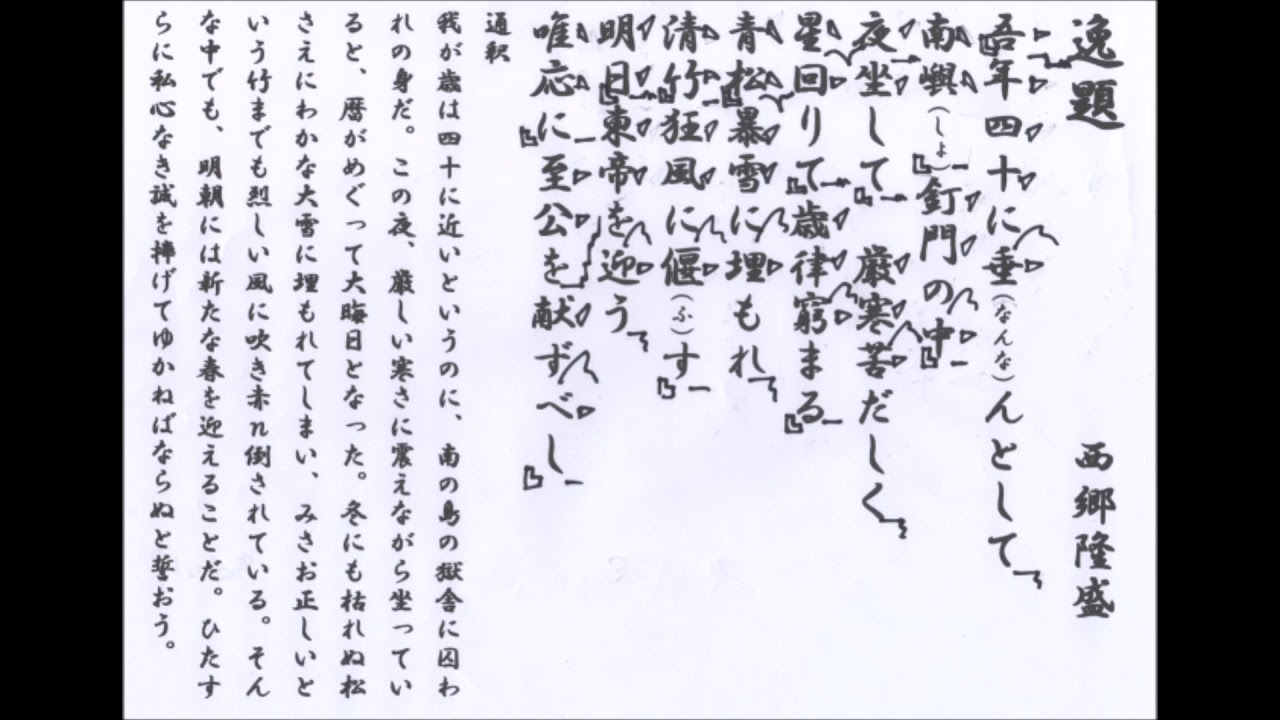 逸題
西郷隆盛
吾年四十に垂(なんな)んとして
南嶼(しょ)釘門の中
夜坐して 厳寒苦だしく
星回りて歳律窮まる
青松暴雪に埋もれ
清竹狂風に偃(ふ)す
明日東帝を迎う
唯応に至公を献ずべし
通釈
我が歳は四十に近いというのに、南の島の獄舎に囚わ
れの身だ。この夜、厳しい寒さに震えながら坐ってい
ると、暦がめぐって大晦日となった。冬にも枯れぬ松
さえにわかな大雪に埋もれてしまい、みさお正しいと
いう竹までも烈しい風に吹き赤n倒されている。そん
な中でも、明朝には新たな春を迎えることだ。ひたす
らに私心なき誠を捧げてゆかねばならぬと誓おう。